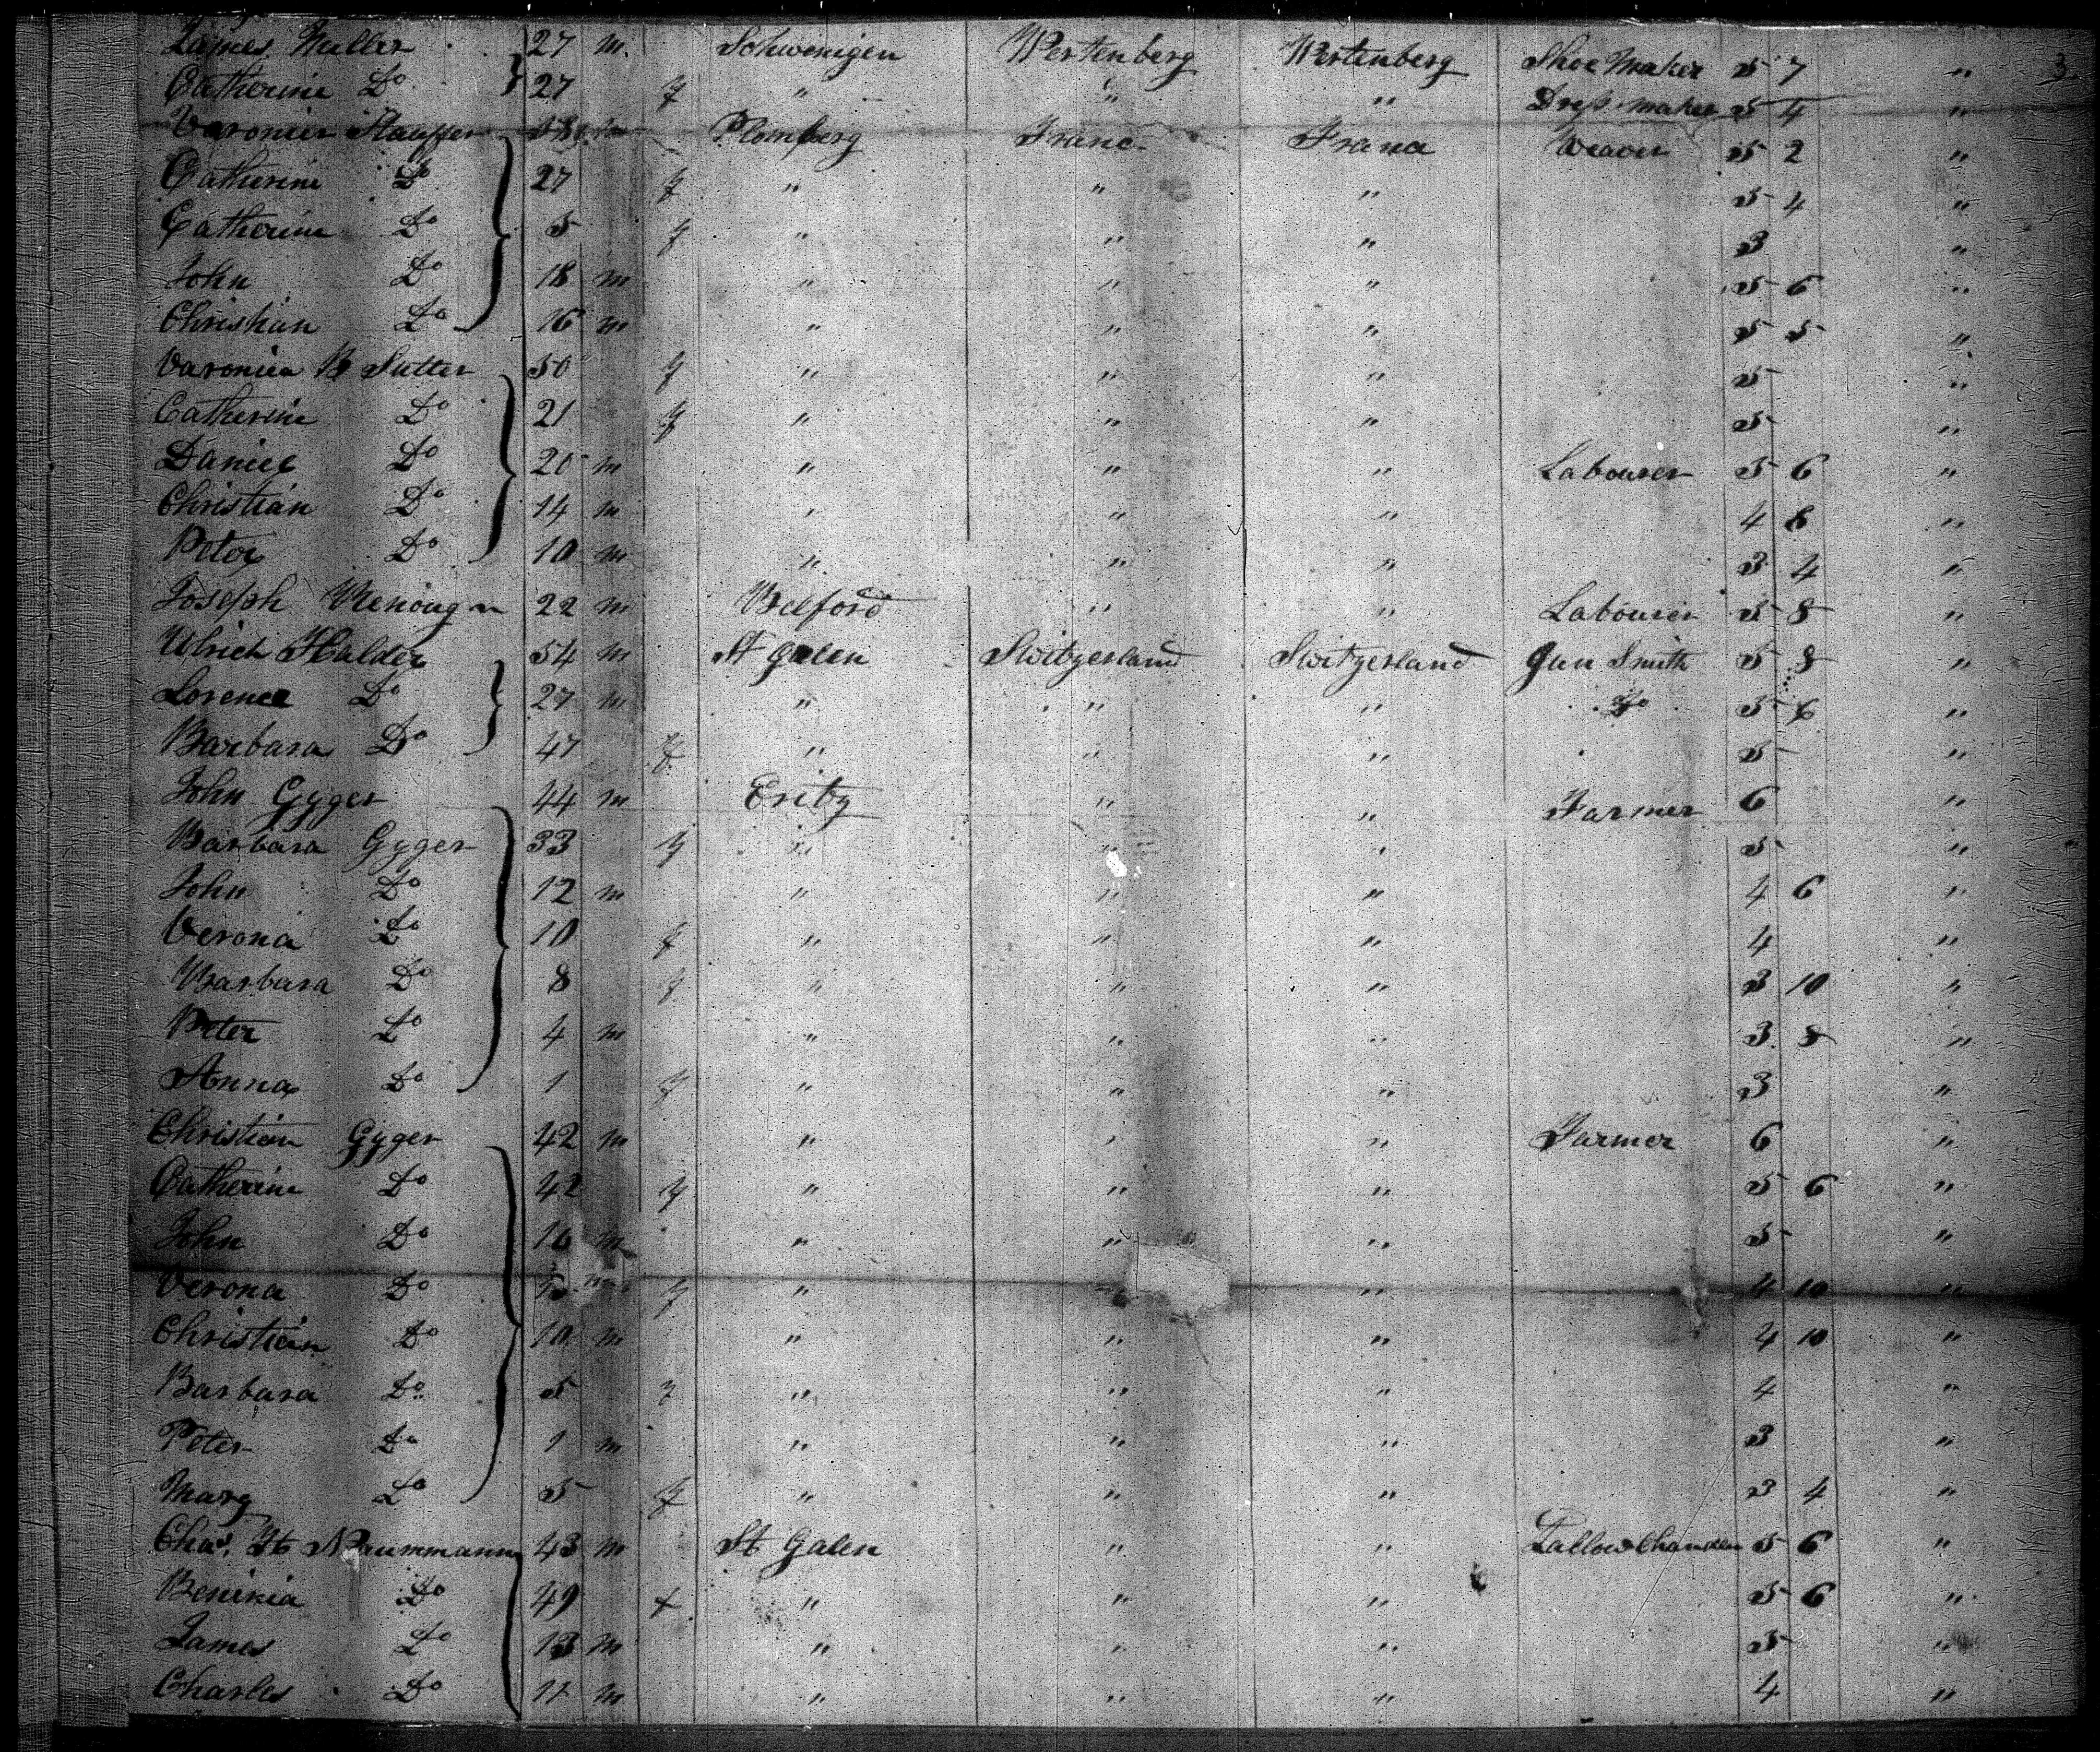 James Muller 27 m. Schwenigen Wertenberg Wertenberg Shoe Maker 5 7 " 3
Catherine Do 27 f " " " Dress maker 5 4 "
Stauffer m Plomberg Franc Franc Weaver 5 2 "
Catherine Do 27 f " " " 5 4 "
Catherine Do 5 f " " " 3 "
John Do 18 m " " " 5 6 "
Christian Do 16 m " " " 5 5 "
Varonica B Sutter 50 f " " " 5 "
Catherine Do 21 f " " " 5 "
Daniel Do 20 m " " " Labourer 5 6 "
Christian Do 14 m " " " 4 8 "
Peter Do 10 m " " " 3 4 "
Joseph 22 m Belford " " Labourer 5 8 "
Ulrich Halder 54 m St Galen Switzerland Switzerland Gun Smith 5 8 "
Lorence Do 27 m " " " Do 5 6 "
Barbara Do 47 f " " " 5 "
John Gyger 44 m Eritz " " Farmer 6 "
Barbara Gyger 33 f " " " 5 "
John Do 12 m " " " 4 6 "
Verona Do 10 f " " " 4 "
Barbara Do 8 f " " " 3 10 "
Peter Do 4 m " " " 3 8 "
Anna Do 1 f " " " 3 "
Christian Gyger 42 m " " " Farmer 6 "
Catherine Do 42 f " " " 5 6 "
John Do 16 m " " " 5 "
Verona Do f " " " 4 10 "
Christian Do 10 m " " " 4 10 "
Barbara Do 5 f " " " 4 "
Peter Do 1 m " " " 3 "
Marg Do 5 f " " " 3 4 "
Chas. Naummann 43 m St Galen " " Tallow Chandler 5 6 "
Do 49 f " " " 5 6 "
James Do 13 m " " " 5 "
Charles Do 11 m " " " 4 "